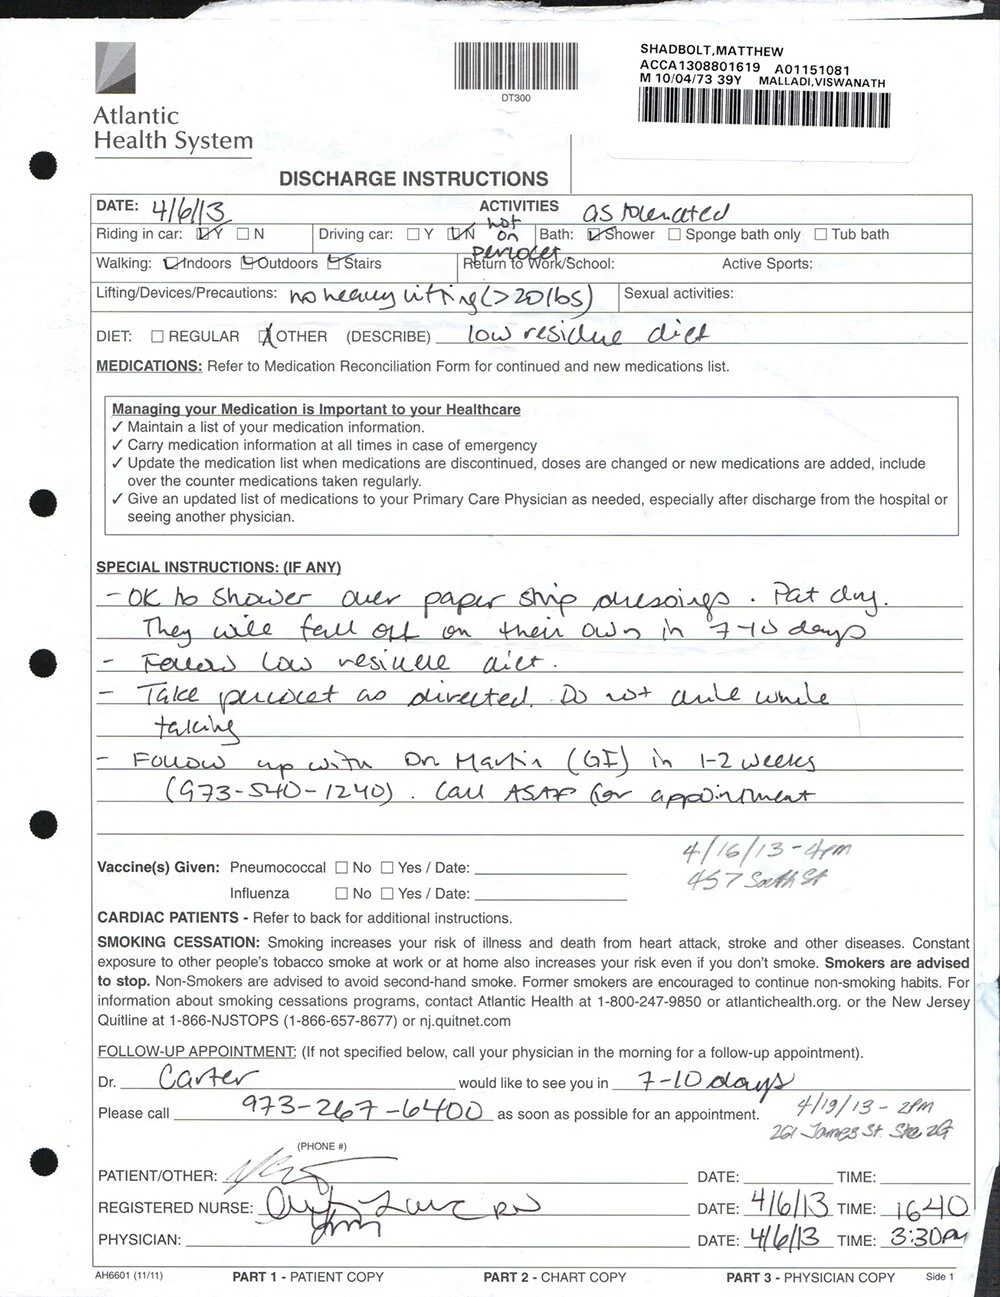 SHADBOLT,MATTHEW
ACCA1308801619 A01151081
M 10/04/73 39Y MALLADI,VISWANATH
DT300
Atlantic
Health System
DISCHARGE INSTRUCTIONS
DATE: 4/6/13 ACTIVITIES as tolerated
Riding in car: Y N Driving car: Y N not on percocet Bath: Shower Sponge bath only Tub bath
Walking: Indoors Outdoors Stairs Return to Work/School: Active Sports:
Lifting/Devices/Precautions: no heavy lifting (>20lbs) Sexual activities:
DIET: REGULAR OTHER (DESCRIBE) low residue diet
MEDICATIONS: Refer to Medication Reconciliation Form for continued and new medications list.
Managing your Medication is Important to your Healthcare
✓ Maintain a list of your medication information.
✓ Carry medication information at all times in case of emergency
✓ Update the medication list when medications are discontinued, doses are changed or new medications are added, include
over the counter medications taken regularly.
✓ Give an updated list of medications to your Primary Care Physician as needed, especially after discharge from the hospital or
seeing another physician.
SPECIAL INSTRUCTIONS: (IF ANY)
- OK to shower over paper strip dressings. Pat dry.
They will fall off on their own in 7-10 days
- Follow low residue diet.
- Take percocet as directed. Do not drive while
taking
- Follow up with Dr Martin (GI) in 1-2 weeks
(973-540-1240). Call ASAP for appointment
4/16/13 - 4pm
457 South St
Vaccine(s) Given: Pneumococcal No Yes / Date:
Influenza No Yes / Date:
CARDIAC PATIENTS - Refer to back for additional instructions.
SMOKING CESSATION: Smoking increases your risk of illness and death from heart attack, stroke and other diseases. Constant
exposure to other people's tobacco smoke at work or at home also increases your risk even if you don't smoke. Smokers are advised
to stop. Non-Smokers are advised to avoid second-hand smoke. Former smokers are encouraged to continue non-smoking habits. For
information about smoking cessations programs, contact Atlantic Health at 1-800-247-9850 or atlantichealth.org. or the New Jersey
Quitline at 1-866-NJSTOPS (1-866-657-8677) or nj.quitnet.com
FOLLOW-UP APPOINTMENT: (If not specified below, call your physician in the morning for a follow-up appointment).
Dr. Carter would like to see you in 7-10 days
Please call 973-267-6400 as soon as possible for an appointment.
4/19/13 - 2PM
261 James St. Ste 2G
(PHONE #)
PATIENT/OTHER: DATE: TIME:
REGISTERED NURSE: RN DATE: 4/6/13 TIME: 1640
PHYSICIAN: DATE: 4/6/13 TIME: 3:30PM
AH6601 (11/11) PART 1 - PATIENT COPY PART 2 - CHART COPY PART 3 - PHYSICIAN COPY Side 1